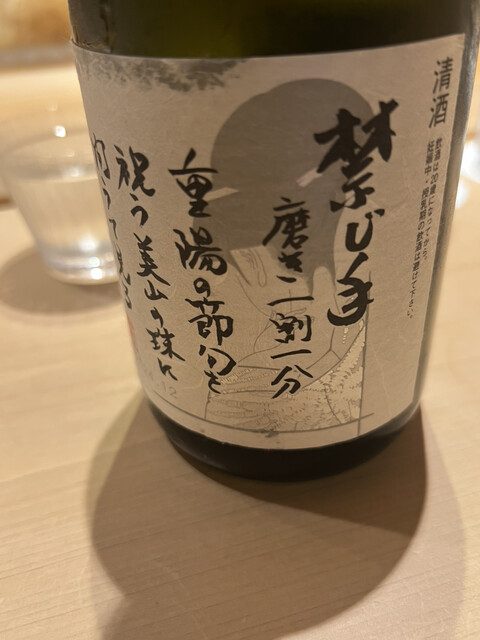 清酒
飲酒は20歳になってから。
妊娠中、授乳期の飲酒は避けて下さい。
禁じ手
磨き二割一分
重陽の節句を
祝う美山の珠に